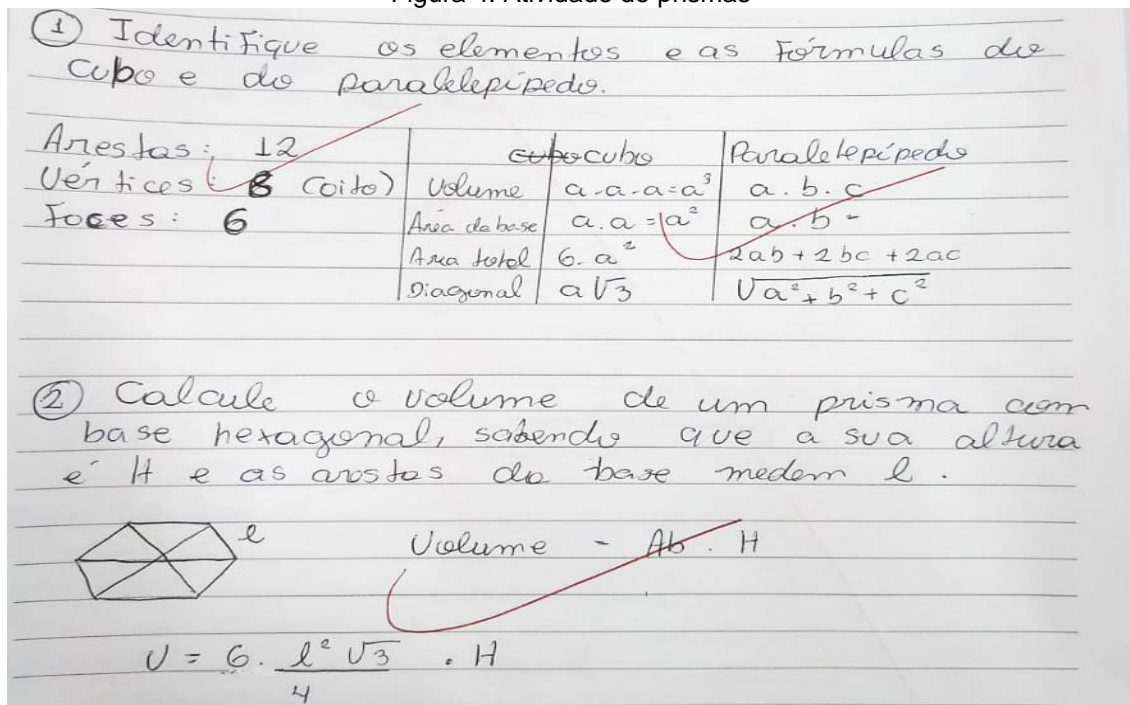 Figura 4. Atividade de prismas
① Identifique os elementos e as Fórmulas do
cubo e do paralelepípedo.
Arestas: 12
Vértices: 8 (oito)
Faces: 6
cubo cubo | Paralelepípedo
Volume | a.a.a=a³ | a.b.c
Área da base | a.a=a² | a.b-
Area total | 6.a² | 2ab+2bc+2ac
Diagonal | a√3 | √a²+b²+c²
② Calcule o volume de um prisma com
base hexagonal, sabendo que a sua altura
é H e as arestas da base medem l.
l
Volume - Ab. H
V = 6. l²√3 . H
4